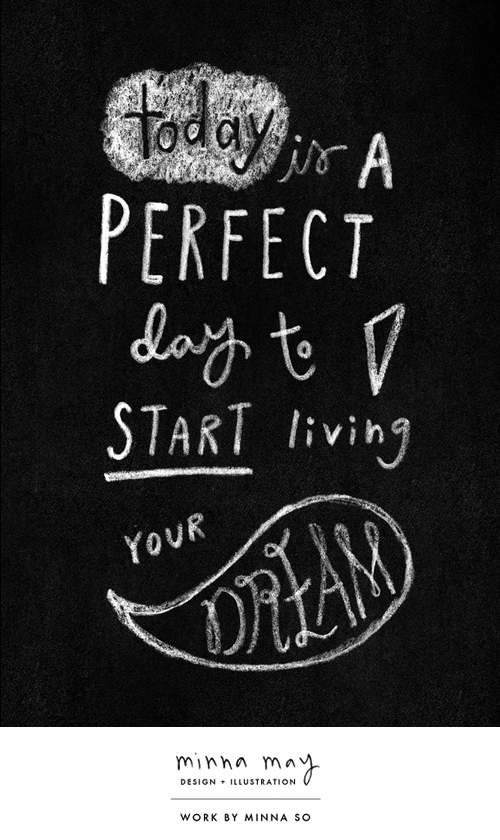 today is A
PERFECT
day to
START living
YOUR
DREAM
minna may
DESIGN + ILLUSTRATION
WORK BY MINNA SO